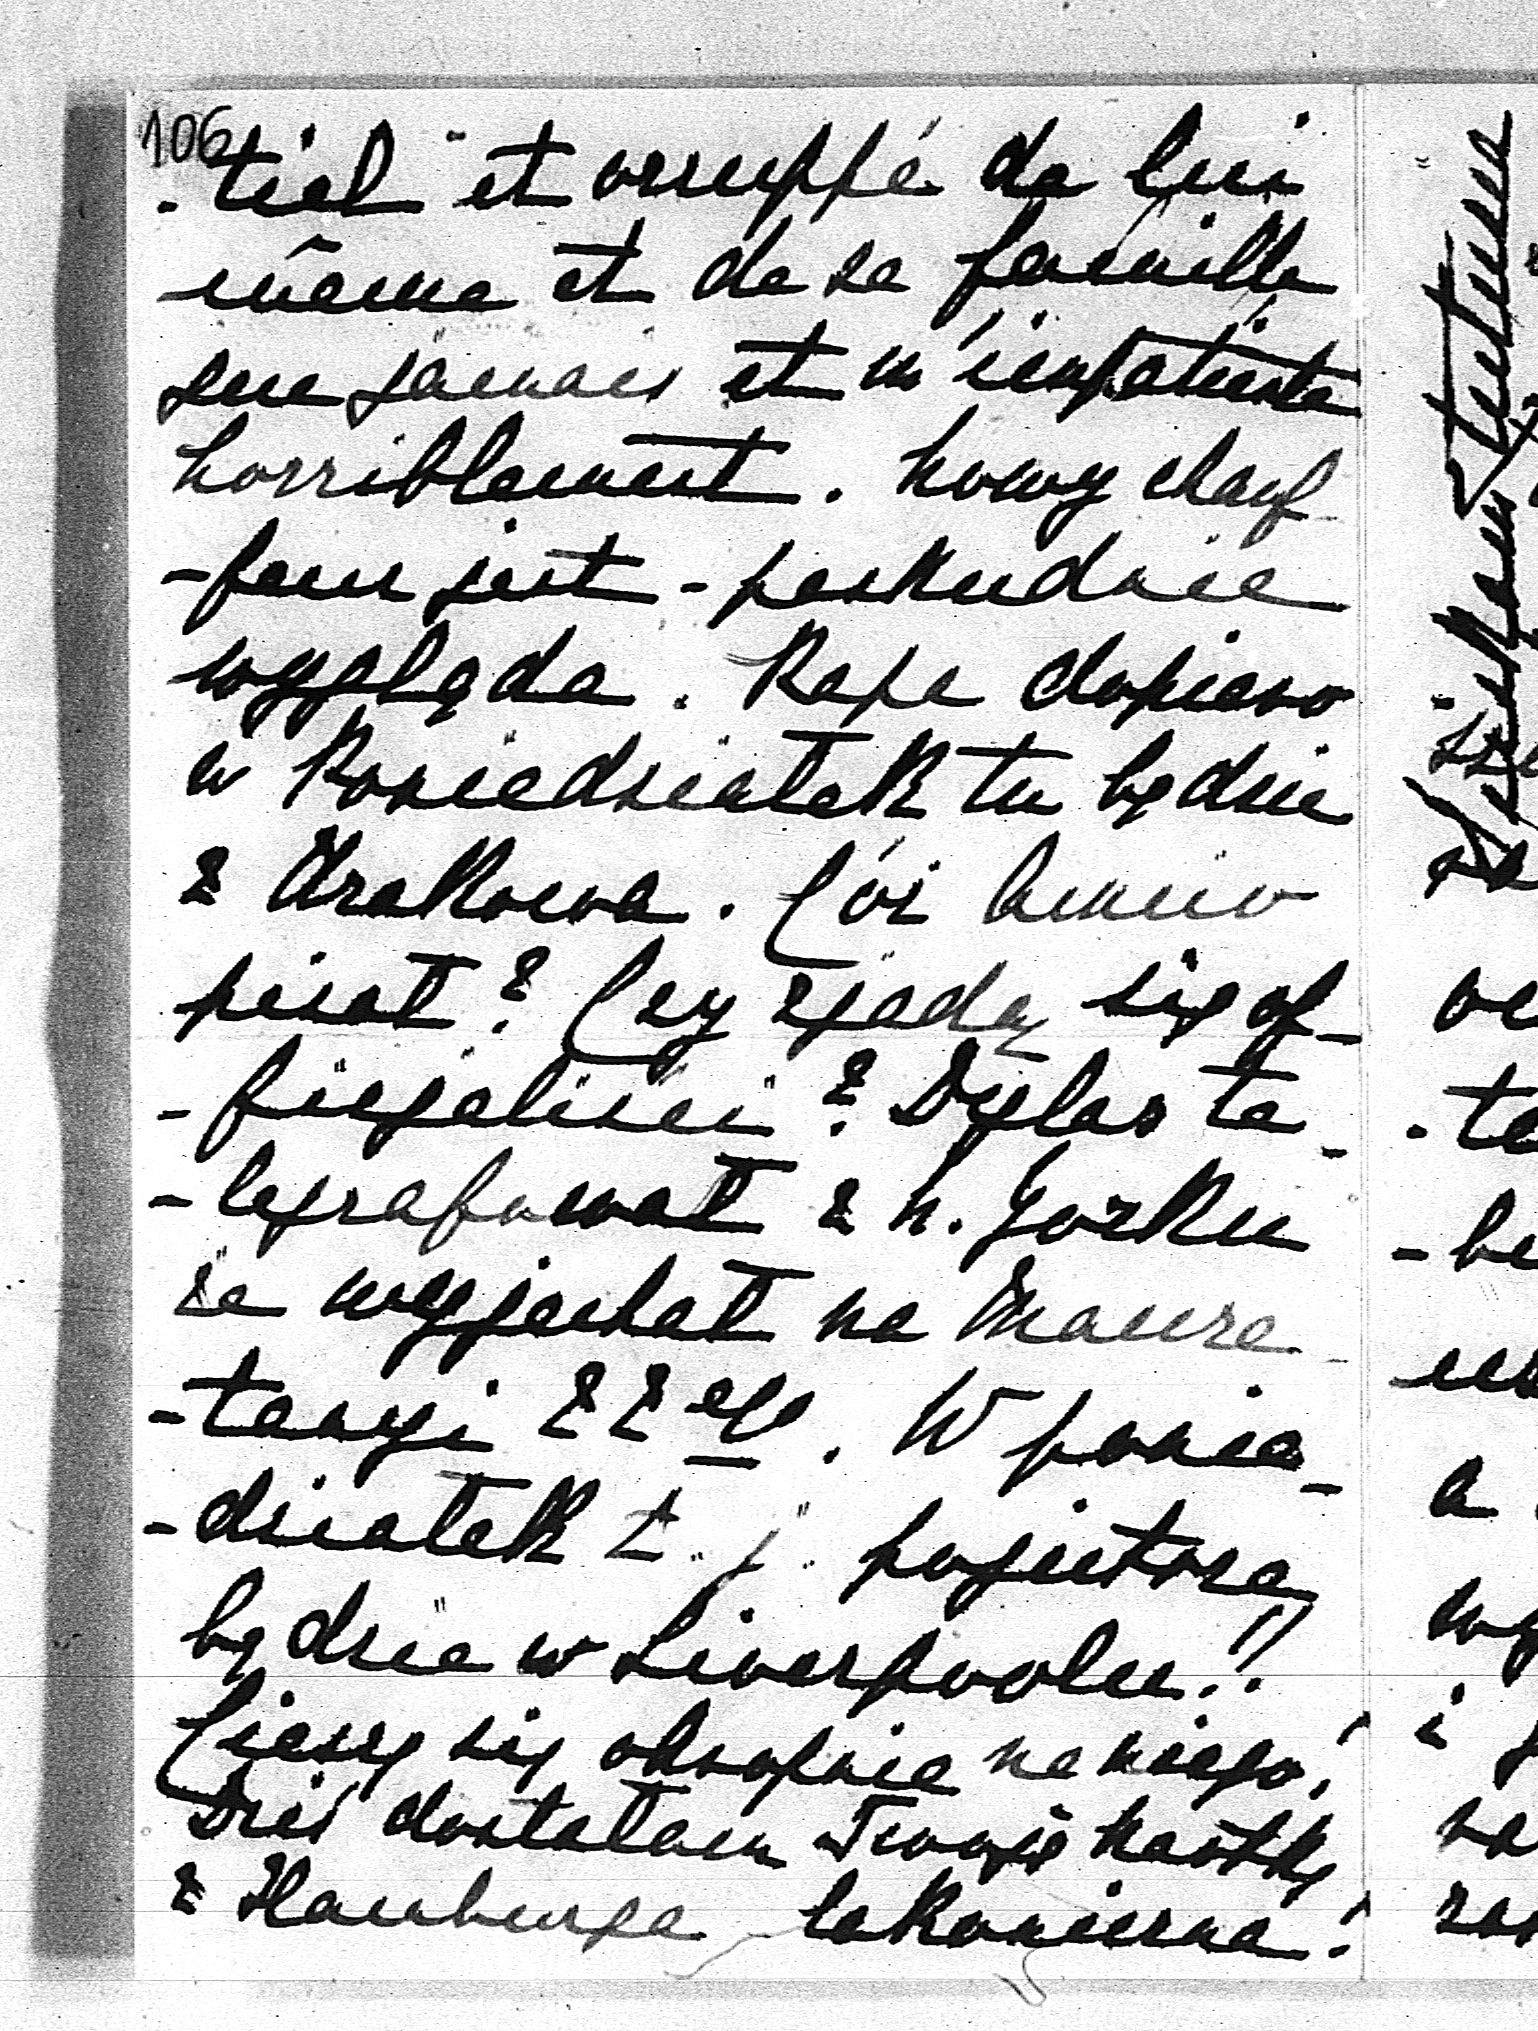 106
-tiel et occuppé de lui
même et de sa famille
que jamais et m'impatiente
horriblement. Nowy chauf-
-feur jest - paskudnie
wygląda. Papa dopiero
w Poniedziałek tu będzie
z Krakowa. Cóż
pisał? Czy zjadą się of-
-ficyaliści? Dyzlas te-
-legrafował z N. Yorku
że wyjechał na Maure-
-tanyi 22 ego. W ponie-
-działek t. j. pojutrze
będzie w Liverpoolu!!
Cieszę się okropnie na niego!
Dziś dostałam Twoję kartkę
z Hamburga lakoniczna!